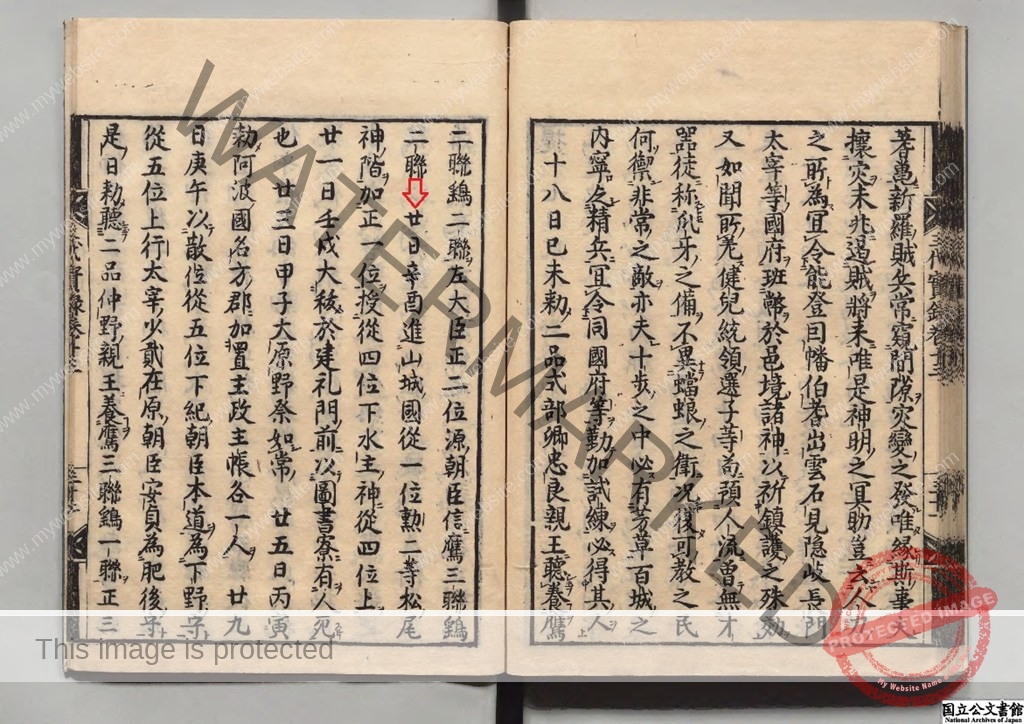 著亀新羅賊兵常窺間隙灾變之發唯縁斯事夫
攘灾未兆遏賊將来唯是神明之冥助豈云人力
之所為冝令能登因幡伯耆出雲石見隠岐長門
太宰等國府班幣於邑境諸神以祈鎮護之殊効
又如聞所羌健兒統領選士等苟預人流曾無才
器徒称爪牙之備不異蟷蜋之衛况復可教之民
何禦非常之敵亦夫十歩之中必有芳草百城之
内寧乏精兵冝令同國府等勤加試練必得其人
十八日已未勅二品式部卿忠良親王聽養鷹
二聯鷂二聯左大臣正二位源朝臣信鷹三聯鷂
二聯 廿日辛酉進山城國從一位勲二等松尾
神階加正一位授從四位下水主神從四位上
廿一日壬戌大秡於建礼門前以圖書寮有人死
也 廿三日甲子大原野祭如常 廿五日丙寅
勅阿波國名方郡加置主政主帳各一人 廿九
日庚午以散位從五位下紀朝臣本道為下野守
從五位上行太宰少貳在原朝臣安貞為肥後守
是日勅聽二品仲野親王養鷹三聯鷂一聯正三
三代實録巻十三
WATERMARKED
www.mywebsite.com
This image is protected
PROTECTED IMAGE
My Website Name
国立公文書館
National Archives of Japan